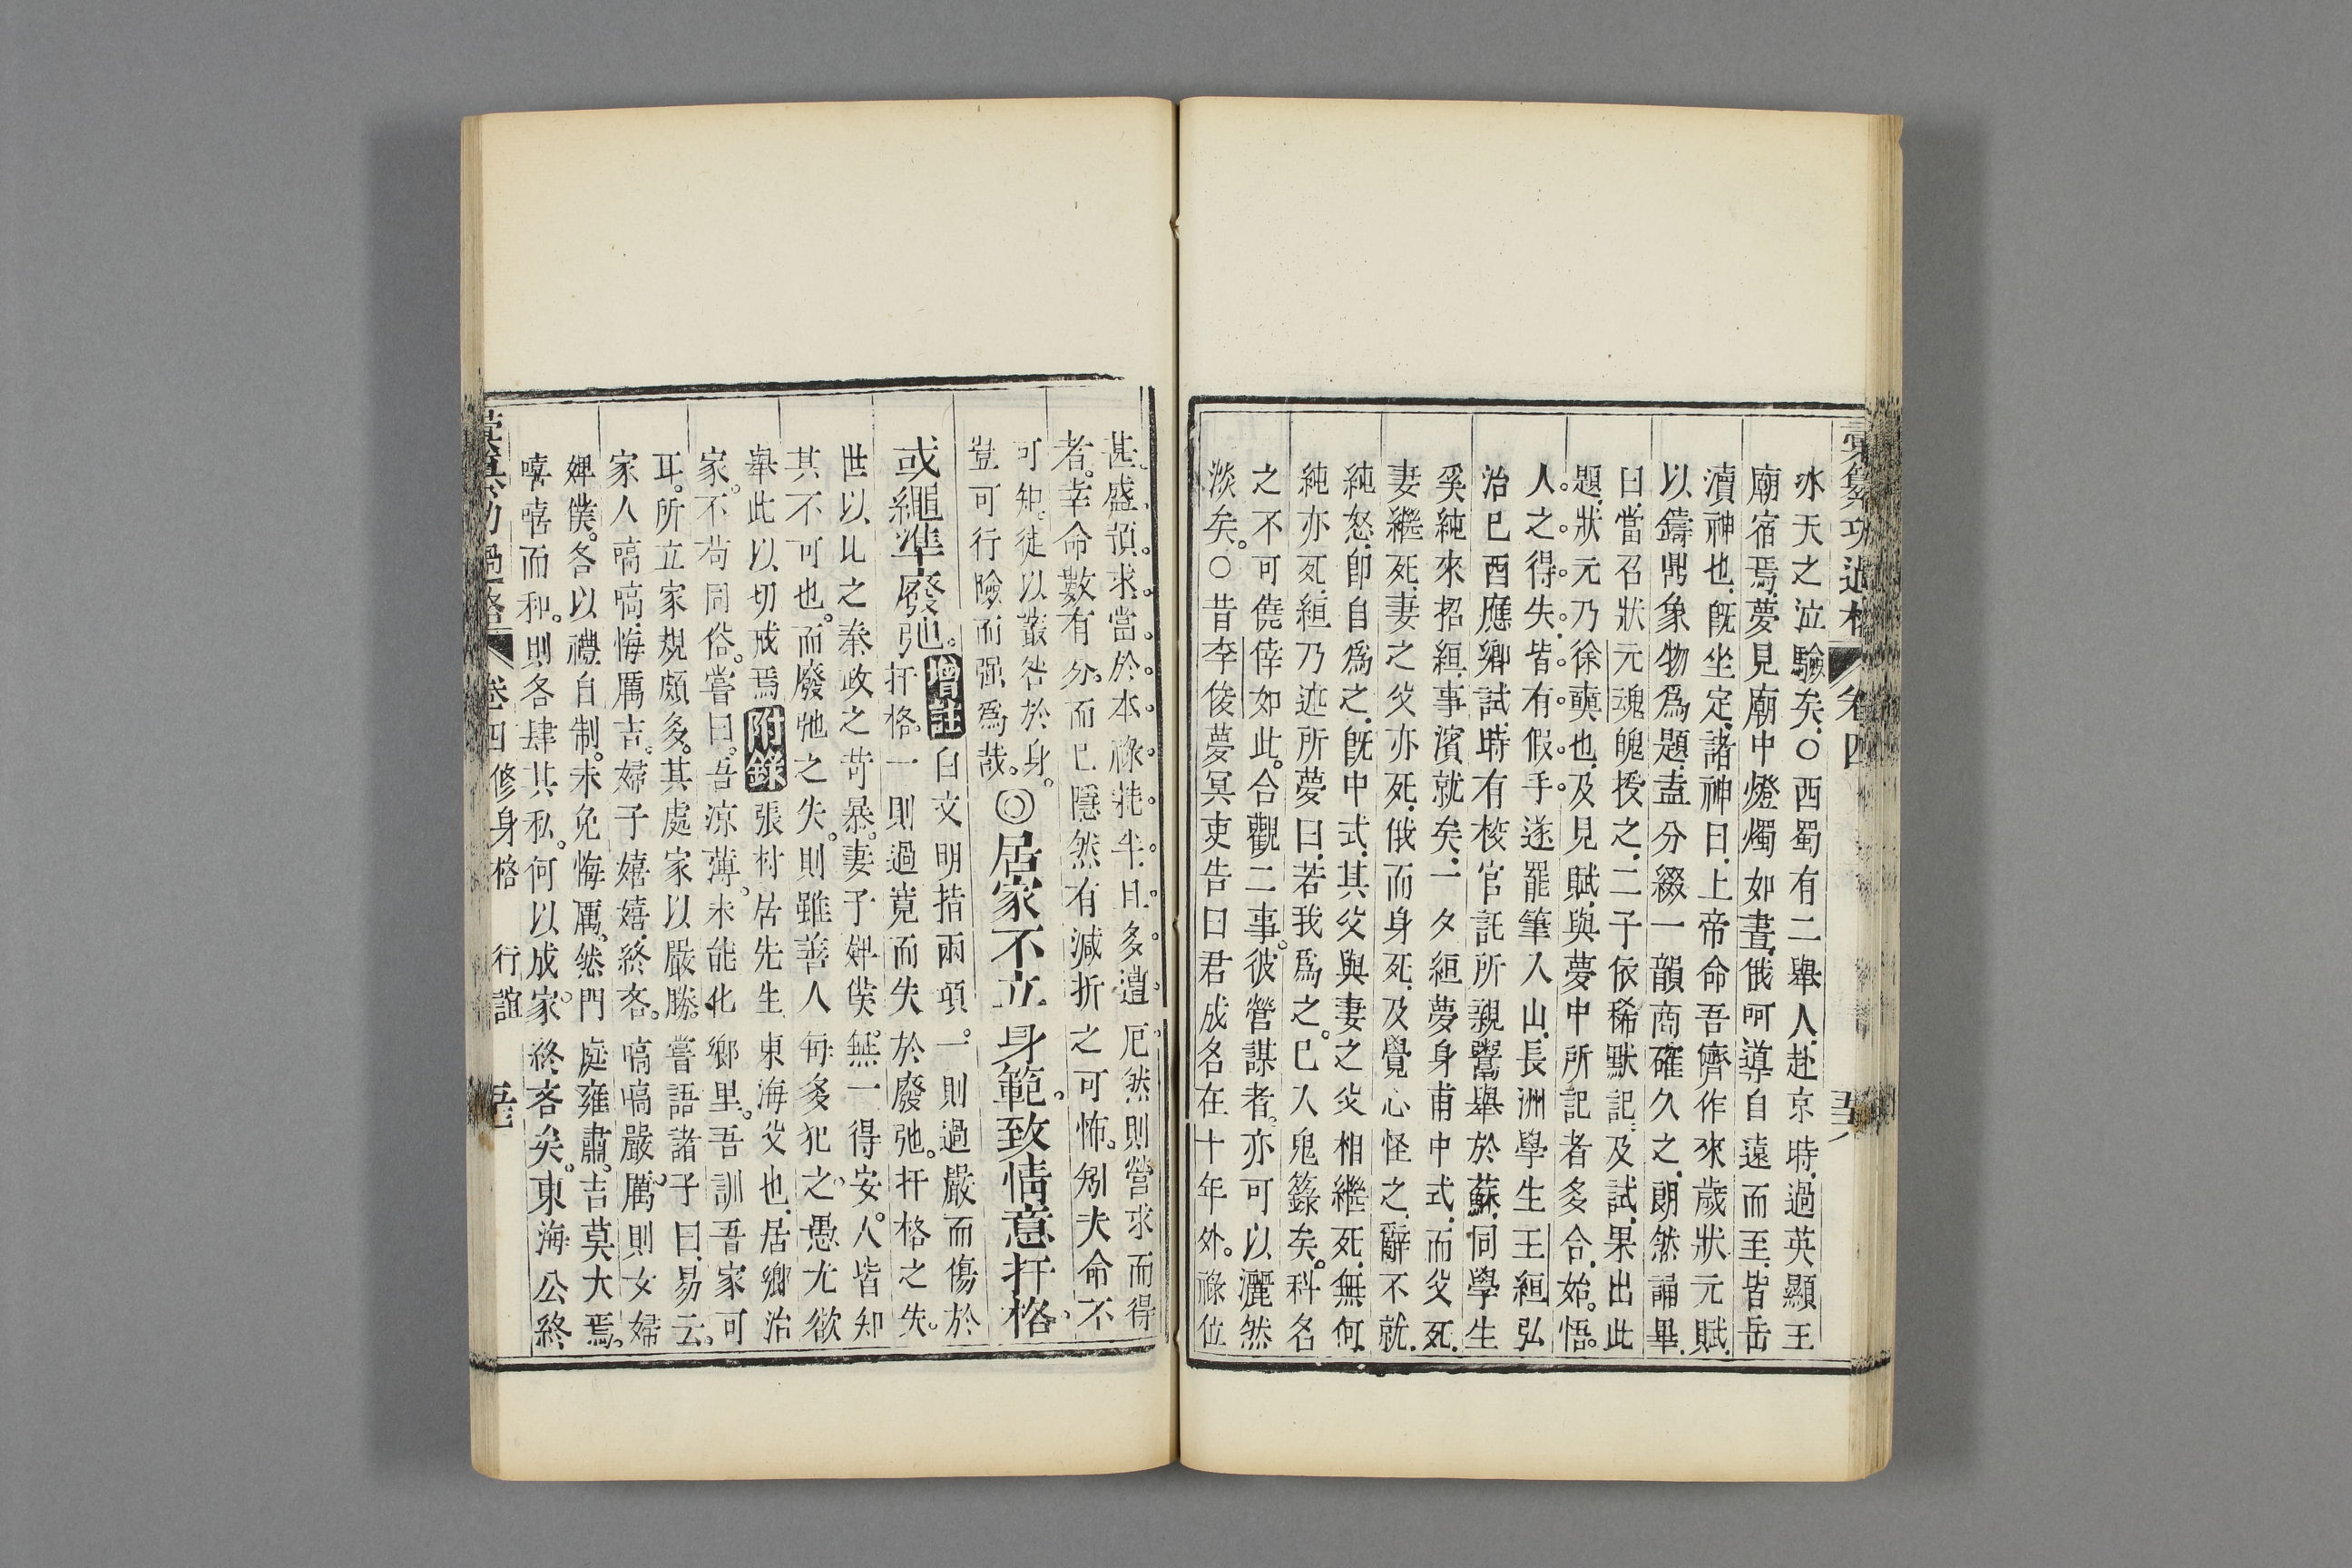 彙纂功過格 卷四
氷天之泣驗矣○西蜀有二舉人赴京時過英顯王
廟宿焉夢見廟中燈燭如晝俄呵導自遠而至皆岳
瀆神也旣坐定諸神曰上帝命吾儕作來歲狀元賦
以鑄鼎象物爲題盍分綴一韻商確久之朗然誦畢
曰當召狀元魂魄授之二子依稀默記及試果出此
題狀元乃徐奭也及見賦與夢中所記者多合始悟
人之得失皆有假手遂罷筆入山長洲學生王絙弘
治巳酉應鄉試時有校官託所親鬻舉於蘇同學生
奚純來招絙事濱就矣一夕絙夢身甫中式而父死
妻繼死妻之父亦死俄而身死及覺心怪之辭不就
純怒卽自爲之旣中式其父與妻之父相繼死無何
純亦死絙乃述所夢曰若我爲之巳入鬼籙矣科名
之不可僥倖如此合觀二事彼營謀者亦可以灑然
淡矣○昔李俊夢冥吏告曰君成名在十年外祿位
甚盛頃求當於本祿耗半且多遭厄然則營求而得
者幸命數有分而巳隱然有減折之可怖矧夫命不
可知徒以叢咎於身
豈可行險而强爲哉◎居家不立身範致情意扞格
或繩準廢弛增註白文明指兩項一則過嚴而傷於
扞格一則過寬而失於廢弛扞格之失
世以比之秦政之苛暴妻子婢僕無一得安人皆知
其不可也而廢弛之失則雖善人每多犯之愚尤欲
舉此以切戒焉附錄張村居先生東海父也居鄉治
家不苟同俗嘗曰吾涼薄未能化鄉里吾訓吾家可
耳所立家規頗多其處家以嚴勝嘗語諸子曰易云
家人嗃嗃悔厲吉婦子嬉嬉終吝嗃嗃嚴厲則女婦
婢僕各以禮自制未免悔厲然門庭雍肅吉莫大焉
嘻嘻而和則各肆其私何以成家終吝矣東海公終
彙纂功過格 卷四 修身格 行誼